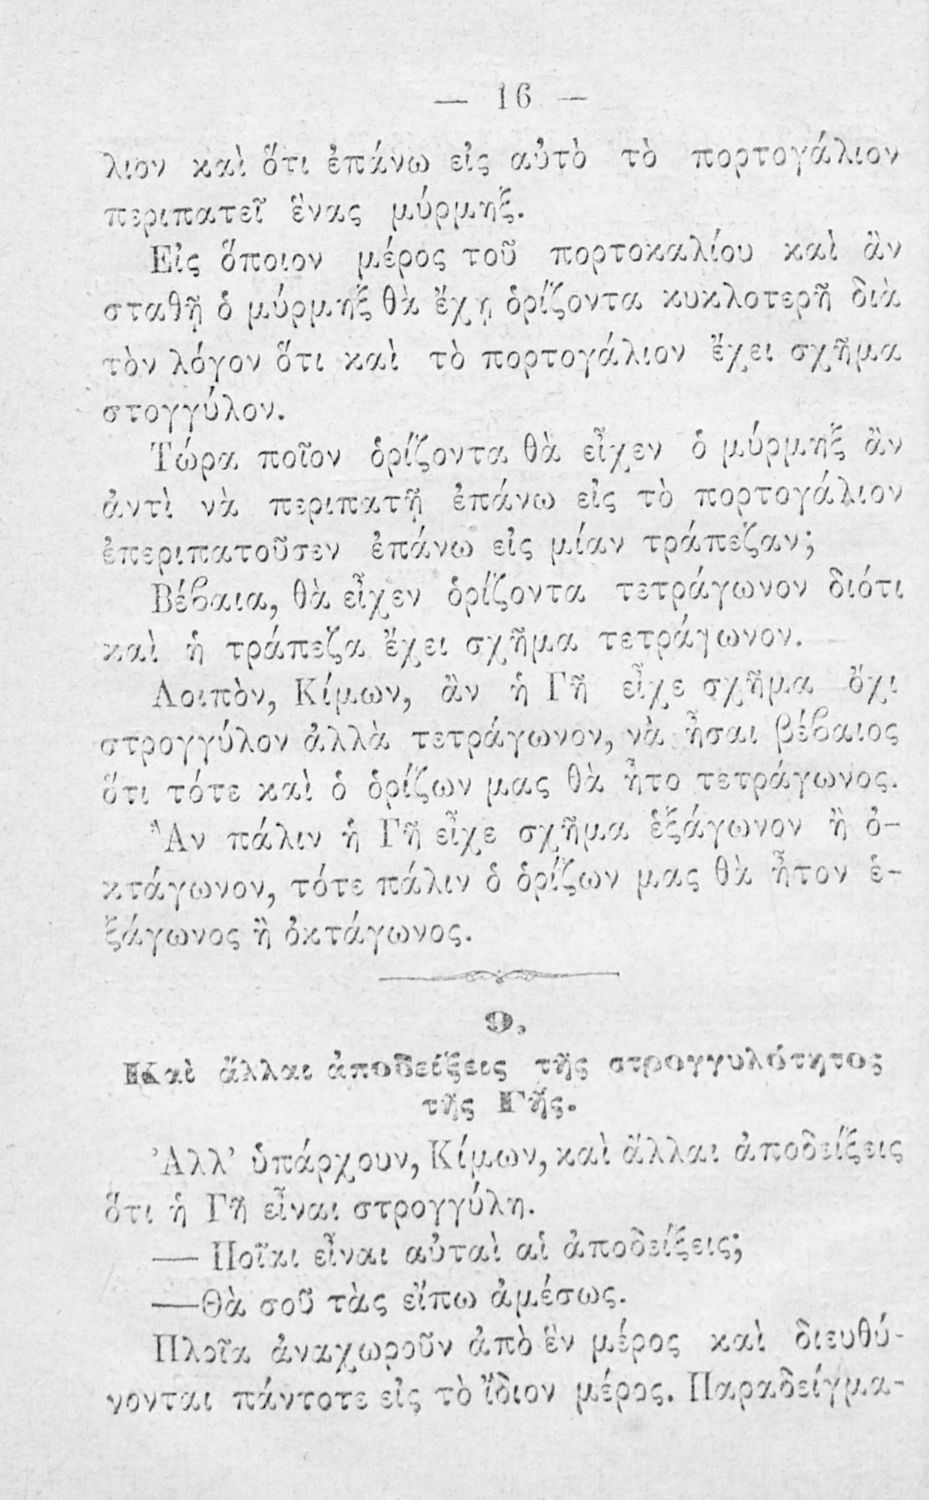 — 16 —
λιον καὶ ὅτι ἐπάνω εἰς αὐτὸ τὸ πορτογάλιον
περιπατεῖ ἕνας μύρμηξ.
Εἰς ὅποιον μέρος τοῦ πορτοκαλίου καὶ ἂν
σταθῇ ὁ μύρμηξ θὰ ἔχῃ ὁρίζοντα κυκλοτερῆ διὰ
τὸν λόγον ὅτι καὶ τὸ πορτογάλιον ἔχει σχῆμα
στογγύλον.
Τώρα ποῖον ὁρίζοντα θὰ εἶχεν ὁ μύρμηξ ἂν
ἀντὶ νὰ περιπατῇ ἐπάνω εἰς τὸ πορτογάλιον
ἐπεριπατοῦσεν ἐπάνω εἰς μίαν τράπεζαν;
Βέβαια, θὰ εἶχεν ὁρίζοντα τετράγωνον διότι
καὶ ἡ τράπεζα ἔχει σχῆμα τετράγωνον.
Λοιπὸν, Κίμων, ἂν ἡ Γῆ εἶχε σχῆμα ὄχι
στρογγύλον ἀλλὰ τετράγωνον, νὰ ἦσαι βέβαιος
ὅτι τότε καὶ ὁ ὁρίζων μας θὰ ἦτο τετράγωνος.
Ἂν πάλιν ἡ Γῆ εἶχε σχῆμα ἑξάγωνον ἢ ὀ-
κτάγωνον, τότε πάλιν ὁ ὁρίζων μας θὰ ἦτον ἑ-
ξάγωνος ἢ ὀκτάγωνος.
9.
Καὶ ἄλλαι ἀποδείξεις τῆς στρογγυλότητος
τῆς Γῆς.
Ἀλλ' ὑπάρχουν, Κίμων, καὶ ἄλλαι ἀποδείξεις
ὅτι ἡ Γῆ εἶναι στρογγύλη.
— Ποῖαι εἶναι αὐταὶ αἱ ἀποδείξεις;
— Θὰ σοῦ τὰς εἴπω ἀμέσως.
Πλοῖα ἀναχωροῦν ἀπὸ ἓν μέρος καὶ διευθύ-
νονται πάντοτε εἰς τὸ ἴδιον μέρος. Παραδείγμα-